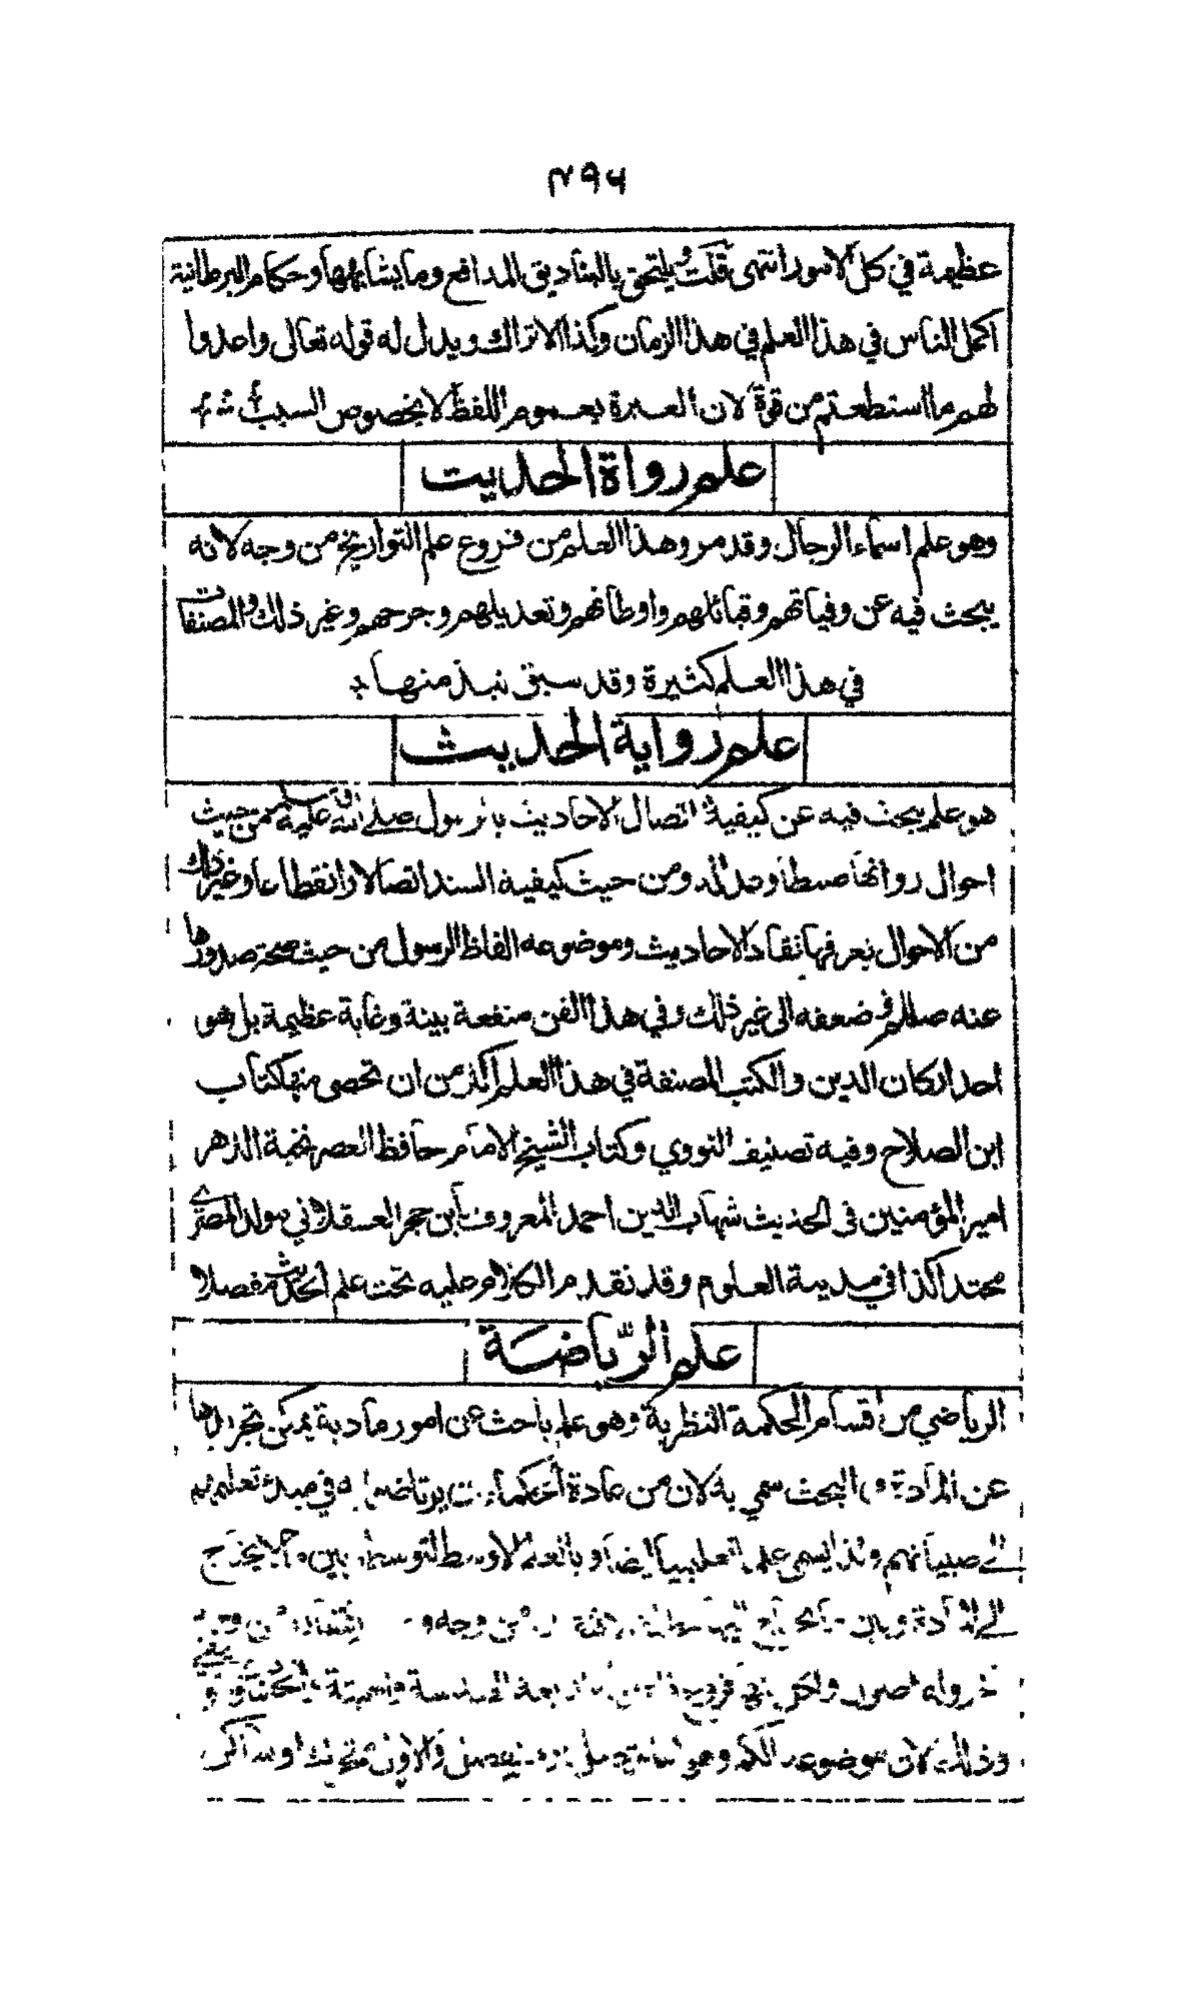 ٤٩٦
عظيمة في كل الامور انتهى قلت ويلتحق بالبناديق المدافع وما يشابهها وحكام البرطانية
اكمل الناس في هذا العلم في هذا الزمان وكذا الاتراك ويدل له قوله تعالى واعدوا
لهم ما استطعتم من قوة لان العبرة بعموم اللفظ لا بخصوص السبب
علم رواة الحديث
وهو علم اسماء الرجال وقد مر وهذا العلم من فروع علم التواريخ من وجه لانه
يبحث فيه عن وفياتهم وقبائلهم واوطانهم وتعديلهم وجرحهم وغير ذلك والمصنفات
في هذا العلم كثيرة وقد سبق نبذ منها
علم رواية الحديث
هو علم يبحث فيه عن كيفية اتصال الاحاديث بالرسول صلى الله عليه وسلم من حيث
احوال رواتها ضبطا وعدالة ومن حيث كيفية السند اتصالا وانقطاعا وغير ذلك
من الاحوال يعرفها نقاد الاحاديث وموضوعه الفاظ الرسول من حيث صحة صدورها
عنه صللم وضعفه الى غير ذلك وفي هذا الفن منفعة بينة وغاية عظيمة بل هو
احد اركان الدين والكتب المصنفة في هذا العلم اكثر من ان تحصى منها كتاب
ابن الصلاح وفيه تصنيف النووي وكتاب الشيخ الامام حافظ العصر نخبة الدهر
امير المؤمنين في الحديث شهاب الدين احمد المعروف بابن حجر العسقلاني مولدا المصري
محتدا كذا في مدينة العلوم وقد تقدم الكلام عليه تحت علم الحديث مفصلا
علم الرياضة
الرياضي من اقسام الحكمة النظرية وهو علم باحث عن امور مادية يمكن تجريدها
عن المادة في البحث سمي به لان من عادة الحكماء ان يرتاضوا به في مبدء تعليمهم
الى صبيانهم ولذا يسمى علما تعليميا ايضا وبالعلم الاوسط لتوسطه بين ما لا يحتاج
الى المادة وبين ما يحتاج اليها مطلقا من وجه
وله اصول ولكل منها فروع اربعة الهندسة
وذلك لان موضوعه الكم وهو اما متصل او منفصل والاول متحرك او ساكن